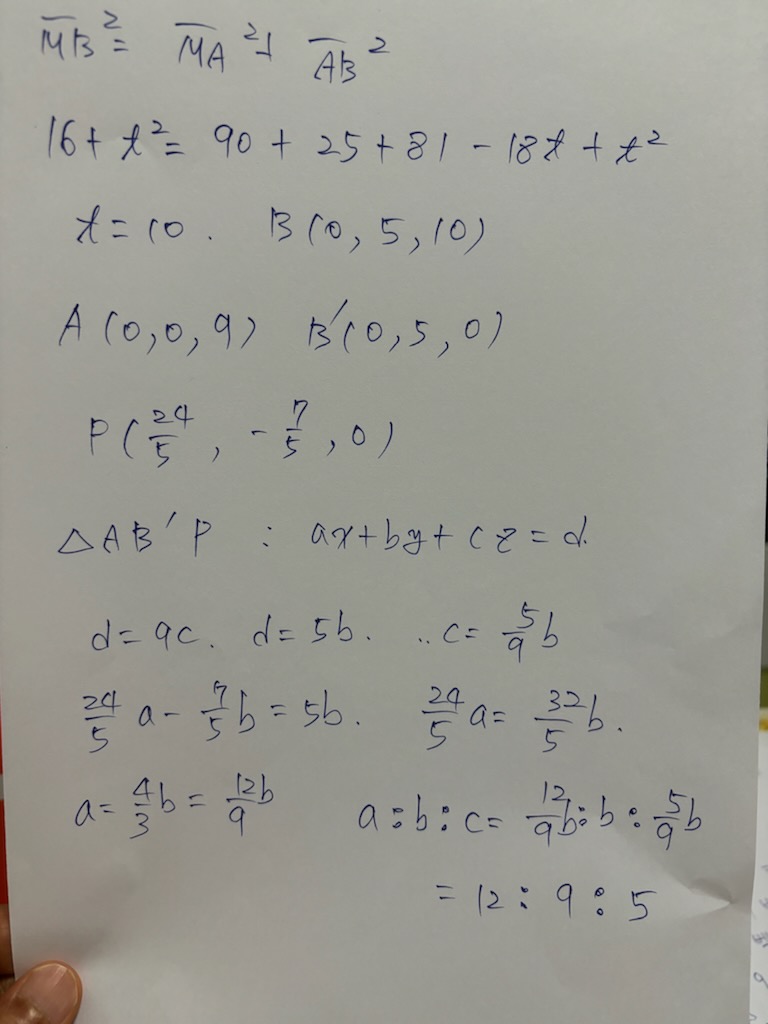 MB̅² = MA̅² + AB̅²
16 + t² = 90 + 25 + 81 - 18t + t²
t = 10. B(0, 5, 10)
A(0, 0, 9) B′(0, 5, 0)
P(24/5, -7/5, 0)
△AB′P : ax + by + cz = d.
d = 9c. d = 5b. ∴ c = 5/9 b
24/5 a - 7/5 b = 5b. 24/5 a = 32/5 b.
a = 4/3 b = 12b/9 a : b : c = 12/9 b : b : 5/9 b
= 12 : 9 : 5